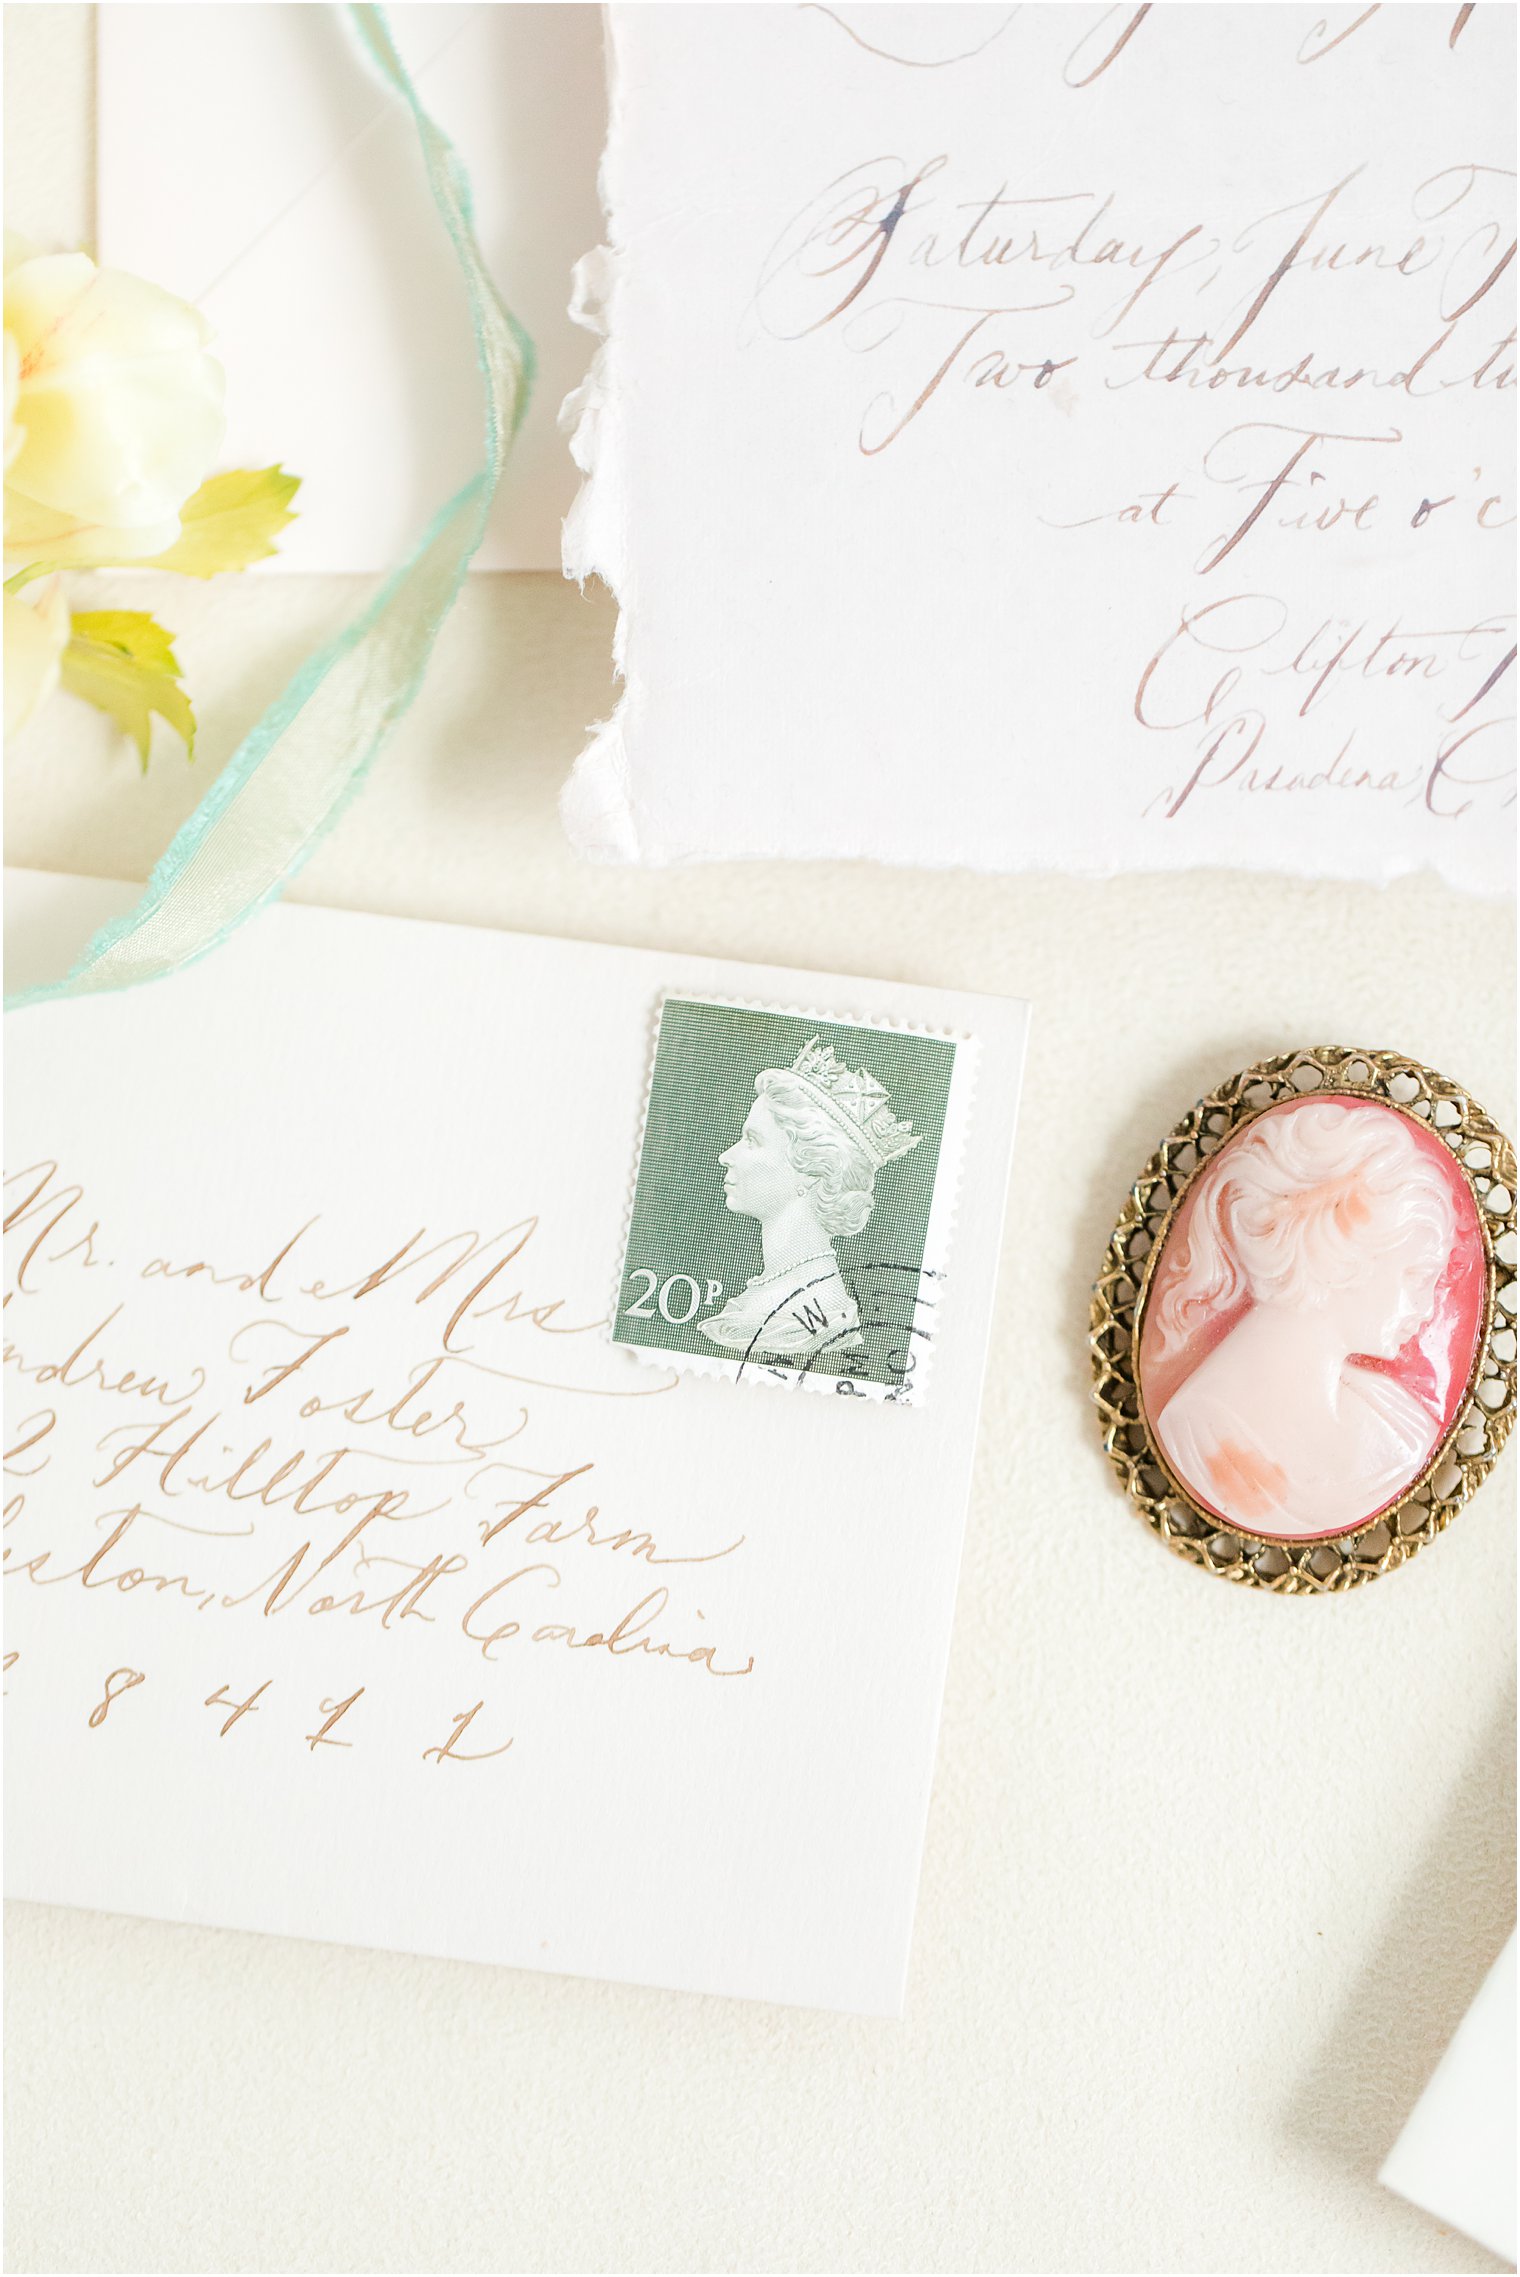 Saturday, June
Two thousand
at Five o'c
Clifton
Pasadena, C
20P
W.
PM
Mr. and Mrs
Andrew Foster
2 Hilltop Farm
eston, North Carolina
8 4 1 1